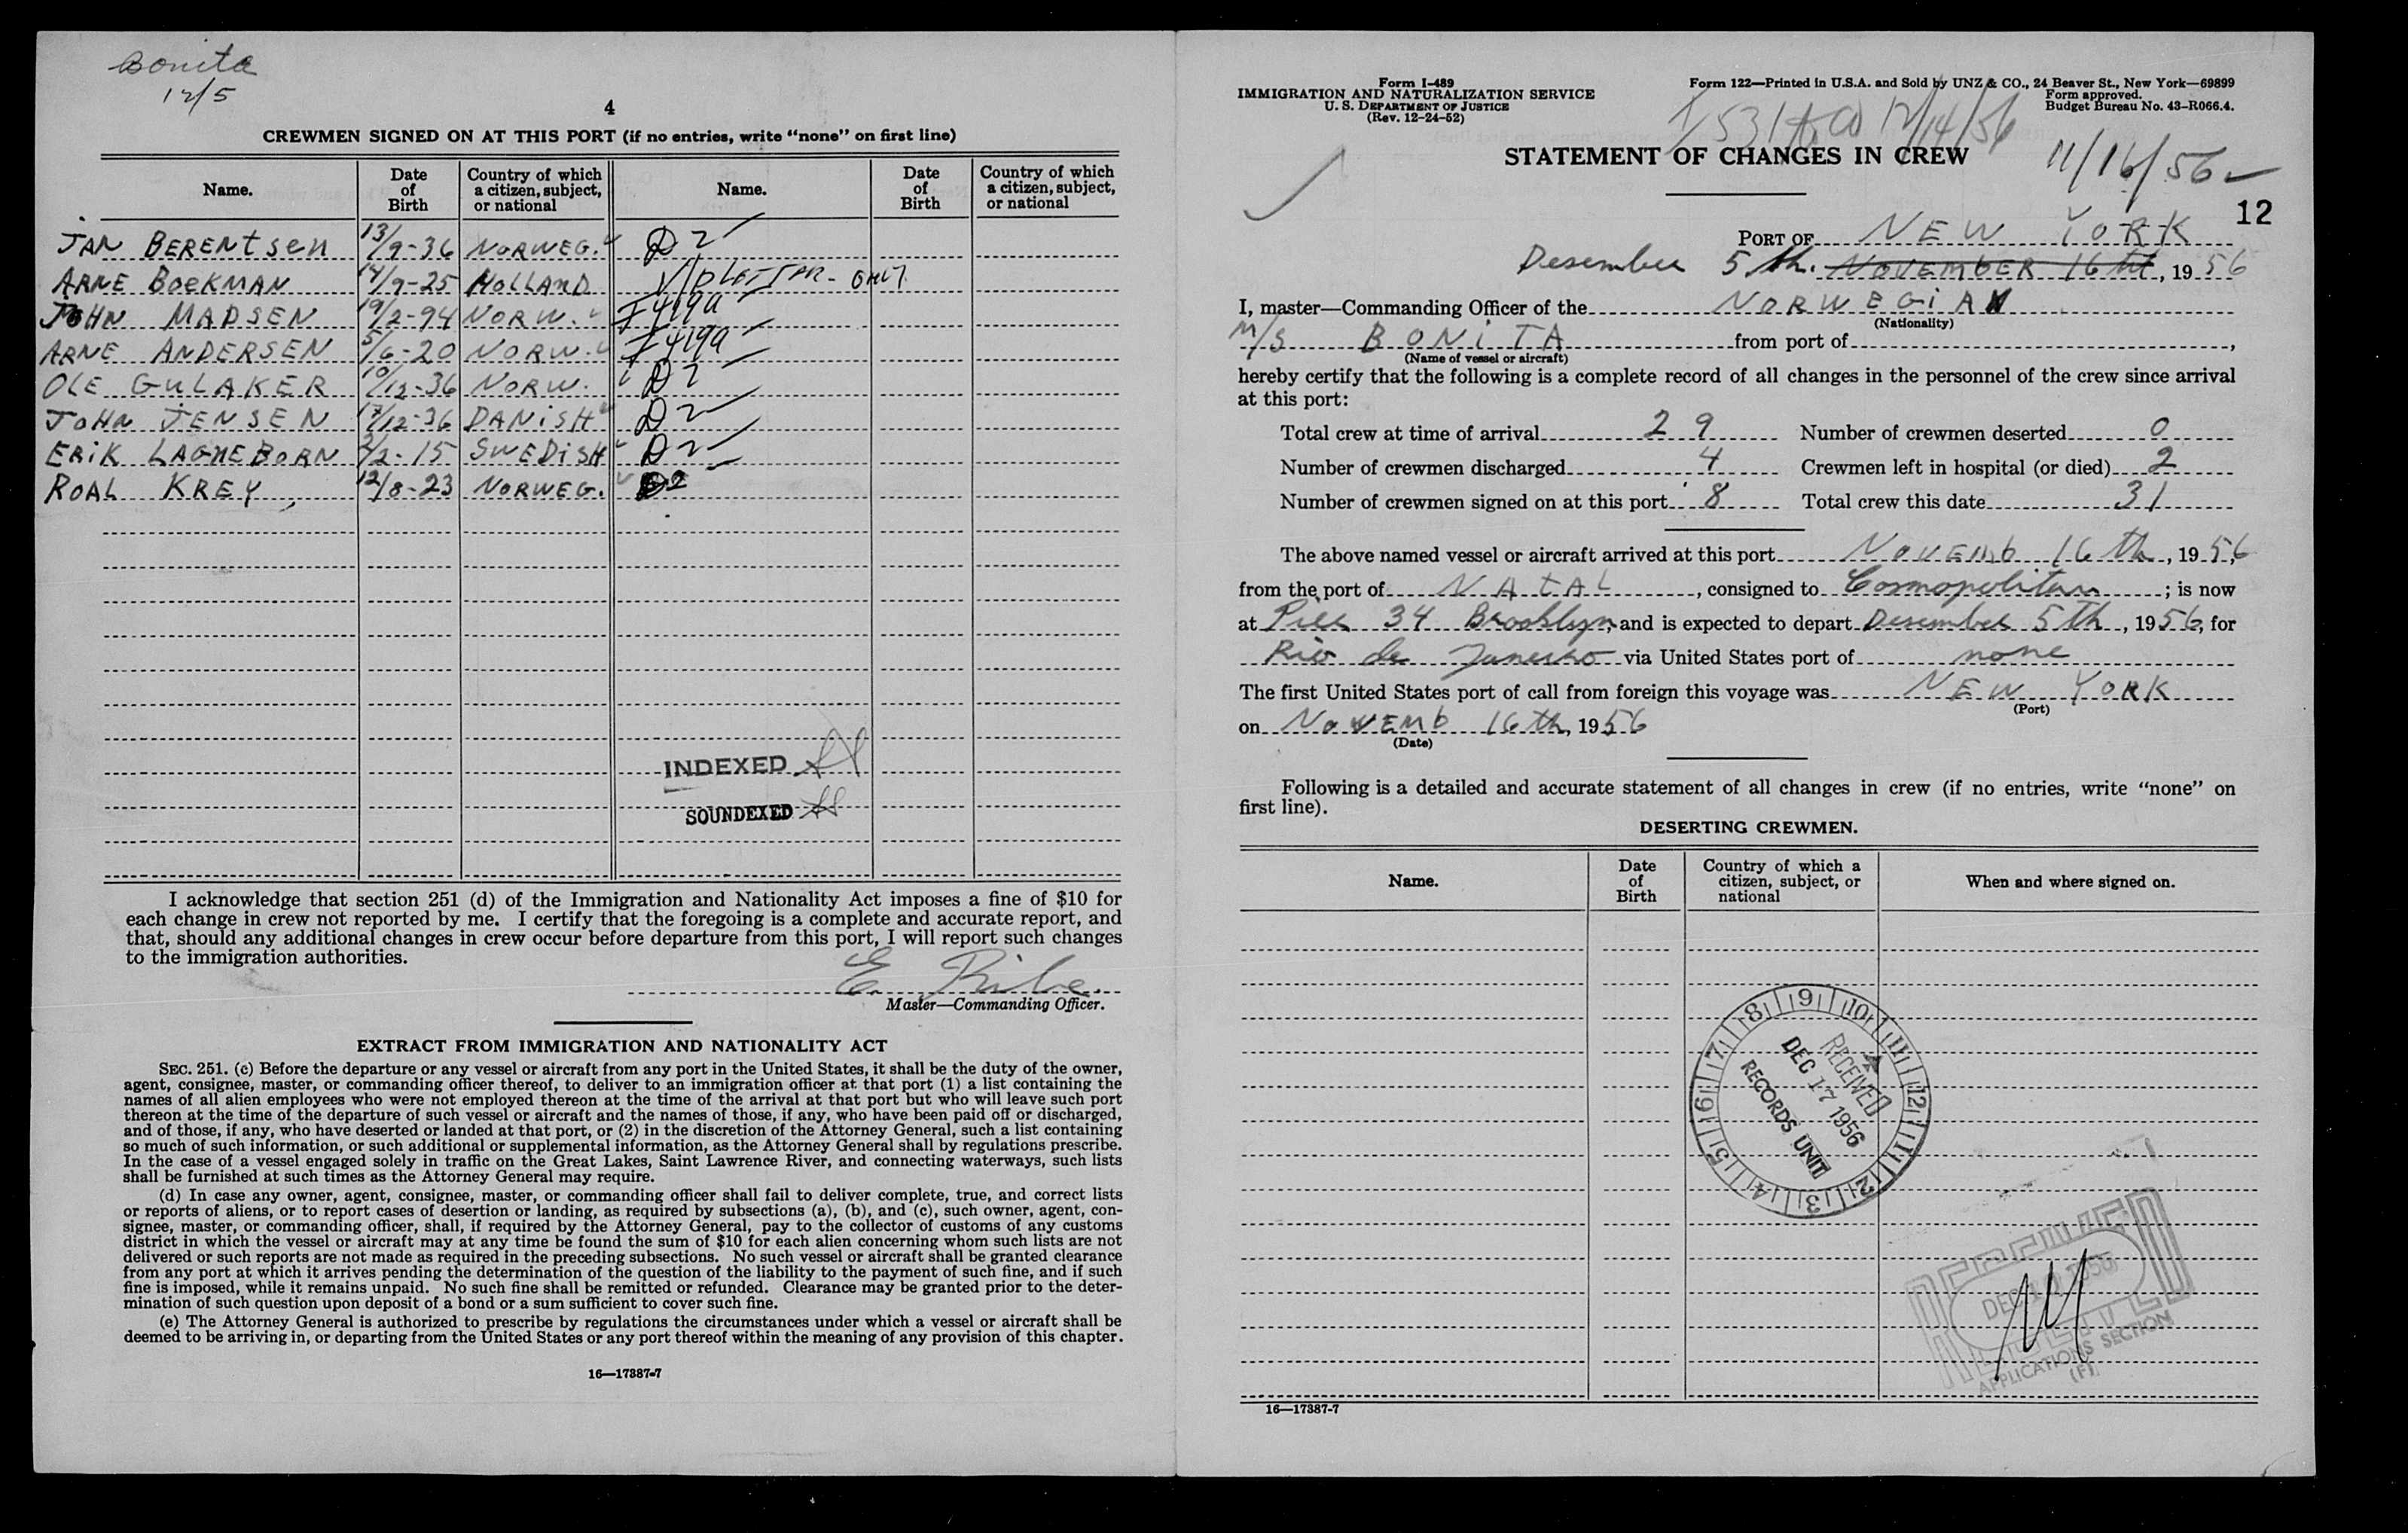 Bonita
12/5
4
CREWMEN SIGNED ON AT THIS PORT (if no entries, write "none" on first line)
Name. Date of Birth Country of which a citizen, subject, or national Name. Date of Birth Country of which a citizen, subject, or national
JAN BERENTSEN 13/9-36 NORWEG. D2
ARNE BOEKMAN 14/9-25 HOLLAND ONLY
JOHN MADSEN 19/2-94 NORW. F419a
ARNE ANDERSEN 5/6-20 NORW. F419a
OLE GULAKER 10/12-36 NORW. D2
JOHN JENSEN 17/12-36 DANISH D2
ERIK LAGNEBORN 2/2-15 SWEDISH D2
ROAL KREY 12/8-23 NORWEG. D2
INDEXED
SOUNDEXED
I acknowledge that section 251 (d) of the Immigration and Nationality Act imposes a fine of $10 for
each change in crew not reported by me. I certify that the foregoing is a complete and accurate report, and
that, should any additional changes in crew occur before departure from this port, I will report such changes
to the immigration authorities.
E. Ribe.
Master—Commanding Officer.
EXTRACT FROM IMMIGRATION AND NATIONALITY ACT
SEC. 251. (c) Before the departure or any vessel or aircraft from any port in the United States, it shall be the duty of the owner,
agent, consignee, master, or commanding officer thereof, to deliver to an immigration officer at that port (1) a list containing the
names of all alien employees who were not employed thereon at the time of the arrival at that port but who will leave such port
thereon at the time of the departure of such vessel or aircraft and the names of those, if any, who have been paid off or discharged,
and of those, if any, who have deserted or landed at that port, or (2) in the discretion of the Attorney General, such a list containing
so much of such information, or such additional or supplemental information, as the Attorney General shall by regulations prescribe.
In the case of a vessel engaged solely in traffic on the Great Lakes, Saint Lawrence River, and connecting waterways, such lists
shall be furnished at such times as the Attorney General may require.
(d) In case any owner, agent, consignee, master, or commanding officer shall fail to deliver complete, true, and correct lists
or reports of aliens, or to report cases of desertion or landing, as required by subsections (a), (b), and (c), such owner, agent, con-
signee, master, or commanding officer, shall, if required by the Attorney General, pay to the collector of customs of any customs
district in which the vessel or aircraft may at any time be found the sum of $10 for each alien concerning whom such lists are not
delivered or such reports are not made as required in the preceding subsections. No such vessel or aircraft shall be granted clearance
from any port at which it arrives pending the determination of the question of the liability to the payment of such fine, and if such
fine is imposed, while it remains unpaid. No such fine shall be remitted or refunded. Clearance may be granted prior to the deter-
mination of such question upon deposit of a bond or a sum sufficient to cover such fine.
(e) The Attorney General is authorized to prescribe by regulations the circumstances under which a vessel or aircraft shall be
deemed to be arriving in, or departing from the United States or any port thereof within the meaning of any provision of this chapter.
16—17387-7
Form I-489
IMMIGRATION AND NATURALIZATION SERVICE
U. S. DEPARTMENT OF JUSTICE
(Rev. 12-24-52)
Form 122—Printed in U.S.A. and Sold by UNZ & CO., 24 Beaver St., New York—69899
Form approved.
Budget Bureau No. 43-R066.4.
12/14/56
STATEMENT OF CHANGES IN CREW
11/16/56
12
PORT OF NEW YORK
Desember 5th. NOVEMBER 16th, 1956
I, master—Commanding Officer of the NORWEGIAN
(Nationality)
M/S BONITA from port of ,
(Name of vessel or aircraft)
hereby certify that the following is a complete record of all changes in the personnel of the crew since arrival
at this port:
Total crew at time of arrival 29 Number of crewmen deserted 0
Number of crewmen discharged 4 Crewmen left in hospital (or died) 2
Number of crewmen signed on at this port 8 Total crew this date 31
The above named vessel or aircraft arrived at this port NOVEMb 16th, 1956,
from the port of NATAL, consigned to Cosmopolitan; is now
at Pier 34 Brooklyn, and is expected to depart Desember 5th, 1956, for
Rio de Janeiro via United States port of none
The first United States port of call from foreign this voyage was NEW YORK
(Port)
on NOVEMb 16th, 1956
(Date)
Following is a detailed and accurate statement of all changes in crew (if no entries, write "none" on
first line).
DESERTING CREWMEN.
Name. Date of Birth Country of which a citizen, subject, or national When and where signed on.
8 9 10 11 12 1 2 3 4 5 6 7
RECEIVED
DEC 17 1956
RECORDS UNIT
APPLICATIONS SECTION
(F)
16—17387-7